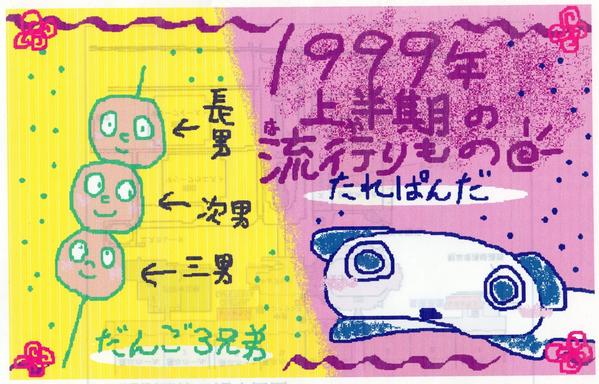 1999年
上半期の
流行りもの@
は
たれぱんだ
長男
次男
三男
だんご3兄弟